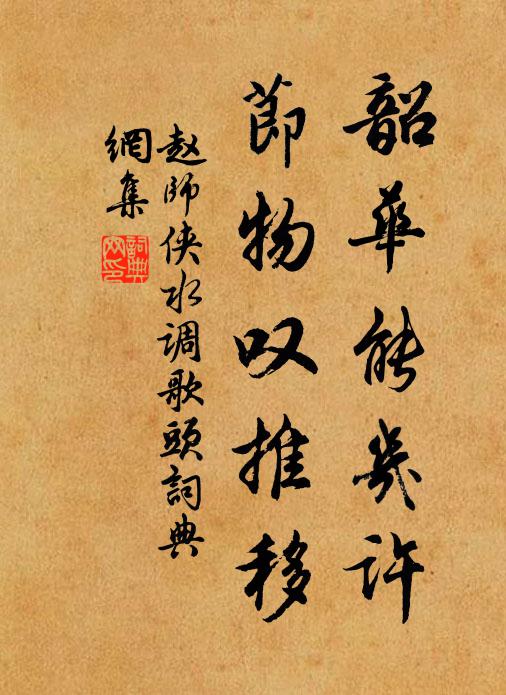 韶華能幾許
節物叹推移
赵師侠水调歌頭詞典
網集
詞典
网印